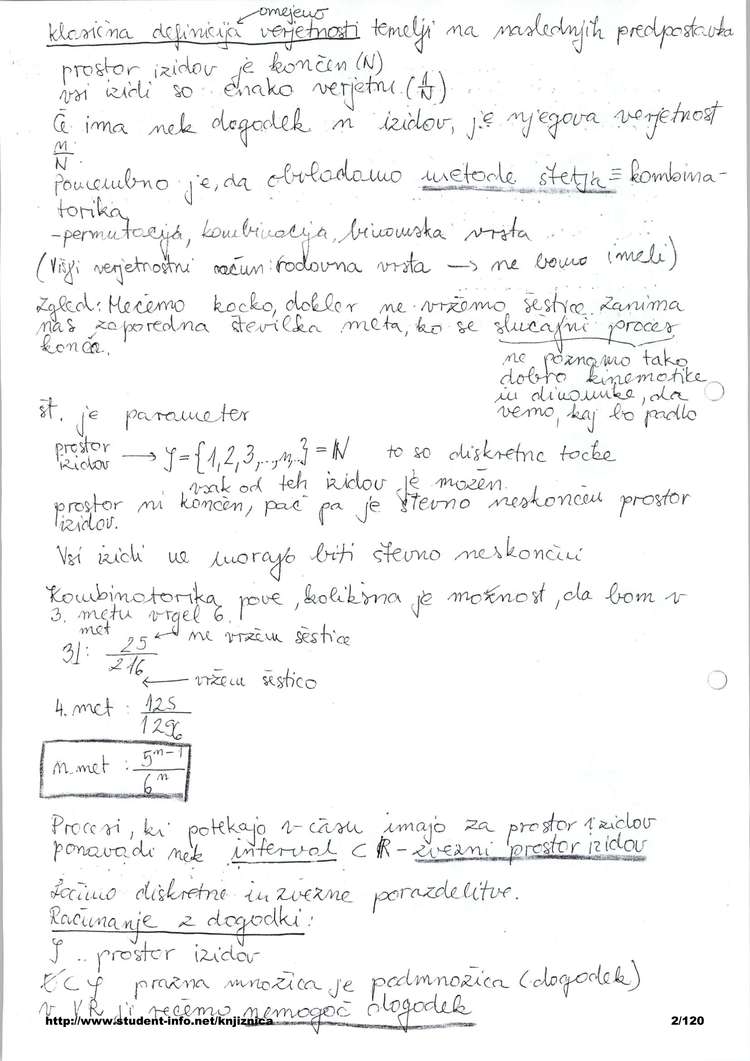 omejeno
klasična definicija verjetnosti temelji na naslednjih predpostavka
prostor izidov je končen (N)
vsi izidi so enako verjetni (1/N)
Če ima nek dogodek n izidov, je njegova verjetnost
n/N.
Pomembno je, da obvladamo metode štetja ≡ kombina-
torika
-permutacija, kombinacija, binomska vrsta
(Višji verjetnostni račun: rodovna vrsta → ne bomo imeli)
Zgled: Mečemo kocko, dokler ne vržemo šestice. Zanima
nas zaporedna številka meta, ko se slučajni proces
konča.
ne poznamo tako
dobro kinematike
in dinamike, da
vemo, kaj bo padlo
št. je parameter
prostor izidov → 𝒮 = {1,2,3,...,n,..} = ℕ to so diskretne točke
vsak od teh izidov je možen.
prostor ni končen, pač pa je števno neskončen prostor
izidov.
Vsi izidi ne morajo biti števno neskončni
Kombinatorika pove, kolikšna je možnost, da bom v
3. metu vrgel 6.
met
3.: 25/216 ← ne vržem šestice
← vržem šestico
4. met : 125/1296
n. met : 5^(n-1)/6^n
Procesi, ki potekajo v času imajo za prostor izidov
ponavadi nek interval ⊂ ℝ - zvezni prostor izidov
Ločimo diskretne in zvezne porazdelitve.
Računanje z dogodki:
𝒮 .. prostor izidov
⊂ 𝒮 prazna množica je podmnožica (dogodek)
v VR ji rečemo nemogoč dogodek
http://www.student-info.net/knjiznica 2/120